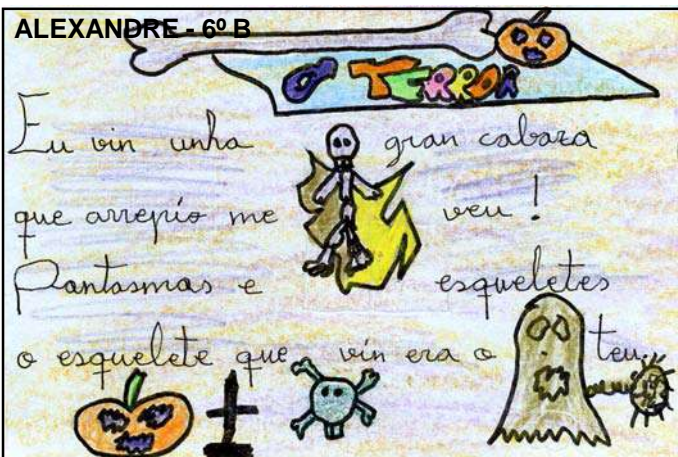 ALEXANDRE - 6º B
O TERROR
Eu vin unha gran cabaza
que arrepío me veu!
Pantasmas e esqueletes
o esquelete que vin era o teu.